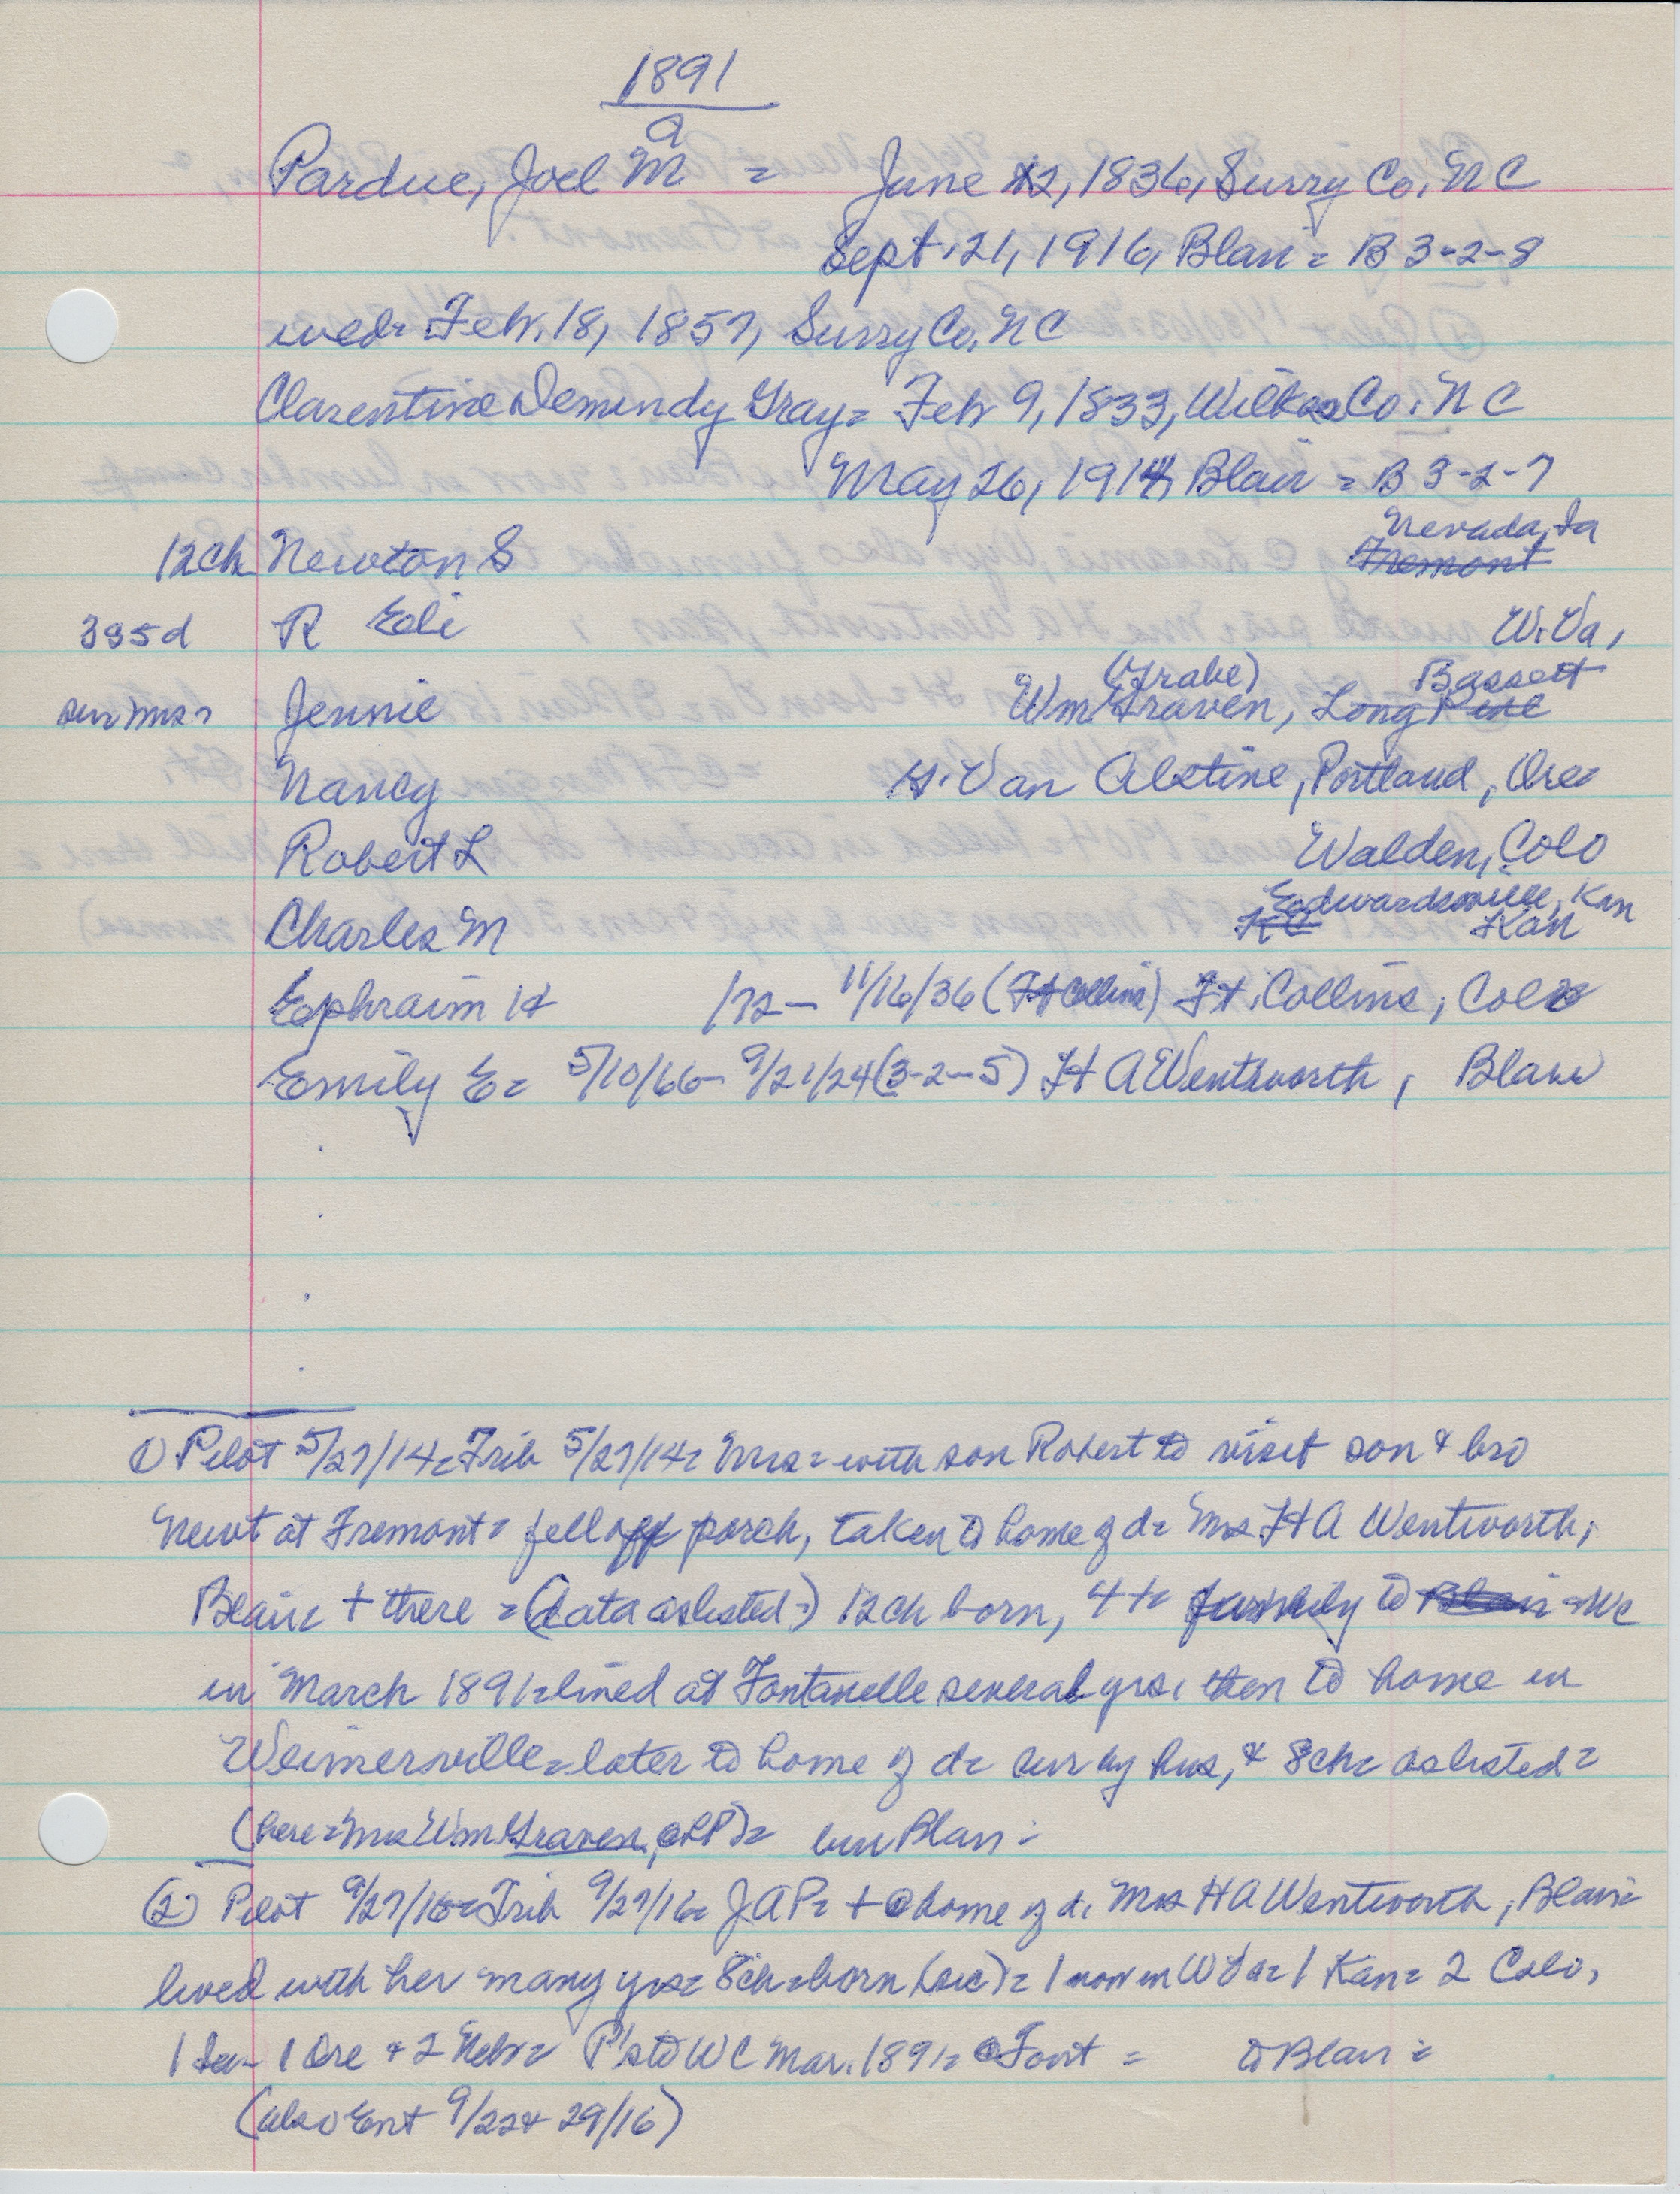 1891
a
Pardue, Joel M = June 12, 1836, Surry Co. NC
Sept. 21, 1916, Blair = B 3-2-8
wed= Feb. 18, 1857, Surry Co. NC
Clarentine Demendy Gray= Feb 9, 1833, Wilkes Co. NC
May 26, 1914, Blair = B 3-2-7
Nevada, Ia
12ch Newton S Fremont
395d R Eli W. Va,
(Grabe) Bassett
sur Mrs= Jennie Wm Graven, Long Pine
Nancy H. Van Alstine, Portland, Ore
Robert L Walden, Colo
Edwardsville, Kan
Charles M KC Kan
Ephraim H /72- 11/16/36 (Ft Collins) Ft. Collins, Colo
Emily E= 5/10/66- 9/21/24 (3-2-5) H A Wentworth, Blair
① Pilot 5/27/14= Trib 5/27/14= Mrs= with son Robert to visit son & bro
Newt at Fremont= fell off porch, taken to home of d= Mrs H A Wentworth,
Blair + there = (data as listed=) 12ch born, 4 += family to Blair =WC
in March 1891= lived at Fontanelle several yrs, then to home in
Weimersville= later to home of d= sur by hus, & 8ch= as listed=
(here= Mrs Wm Graven, @ LP)= bur Blair=
② Pilot 9/27/16= Trib 9/27/16= J A P= + @ home of d, Mrs H A Wentworth, Blair=
lived with her many yrs= 8ch= born (sic)= 1 now in W Va= 1 Kan= 2 Colo,
1 Ia- 1 Ore & 2 Nebr= P's to WC Mar. 1891= @ Font = to Blair=
(also Ent 9/22 & 29/16)